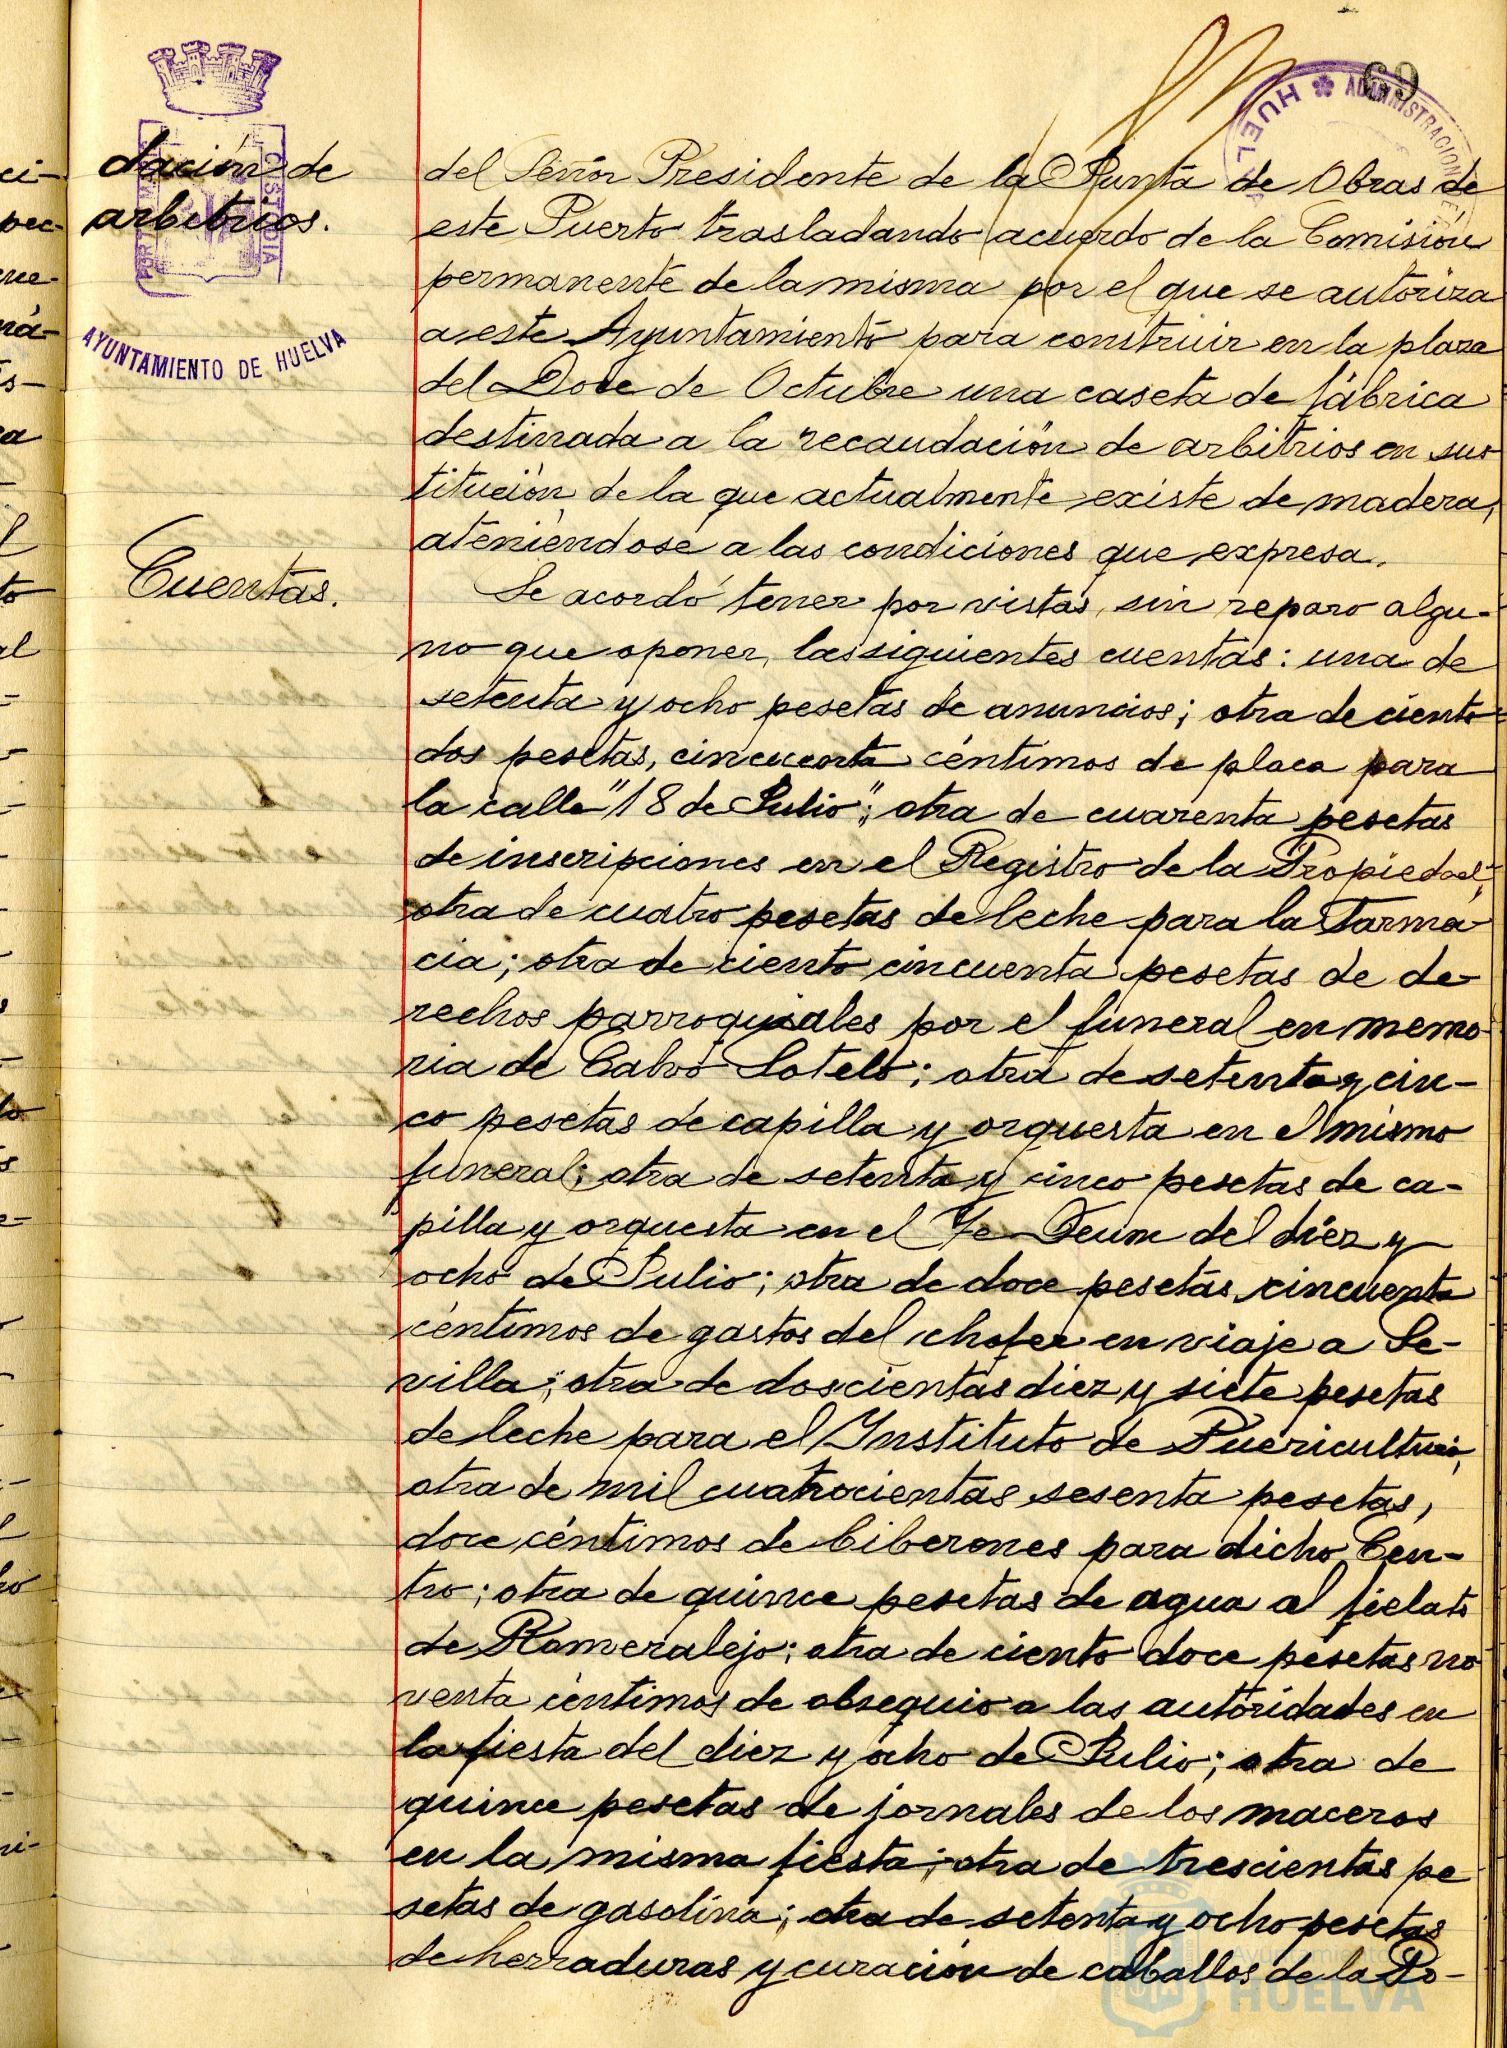 69
ADMINISTRACION DE
HUELVA
PORTUS MARIS
CUSTODIA
AYUNTAMIENTO DE HUELVA
dación de
arbitrios.
del Señor Presidente de la Junta de Obras de
este Puerto trasladando acuerdo de la Comisión
permanente de la misma por el que se autoriza
a este Ayuntamiento para construir en la plaza
del Doce de Octubre una caseta de fábrica
destinada a la recaudación de arbitrios en sus
titución de la que actualmente existe de madera,
ateniéndose a las condiciones que expresa.
Cuentas.
Se acordó tener por vistas, sin reparo algu-
no que oponer, las siguientes cuentas: una de
setenta y ocho pesetas de anuncios; otra de ciento
dos pesetas, cincuenta céntimos de placa para
la calle "18 de Julio"; otra de cuarenta pesetas
de inscripciones en el Registro de la Propiedad;
otra de cuatro pesetas de leche para la Farma
cia; otra de ciento cincuenta pesetas de de-
rechos parroquiales por el funeral en memo
ria de Calvo Sotelo; otra de setenta y cin-
co pesetas de capilla y orquesta en el mismo
funeral; otra de setenta y cinco pesetas de ca-
pilla y orquesta en el Te-Deum del diez y
ocho de Julio; otra de doce pesetas, cincuenta
céntimos de gastos del chofer en viaje a Se-
villa; otra de doscientas diez y siete pesetas
de leche para el Instituto de Puericultura,
otra de mil cuatrocientas sesenta pesetas,
doce céntimos de biberones para dicho Cen-
tro; otra de quince pesetas de agua al fielato
de Romeralejo; otra de ciento doce pesetas no
venta céntimos de obsequio a las autoridades en
la fiesta del diez y ocho de Julio; otra de
quince pesetas de jornales de los maceros
en la misma fiesta; otra de trescientas pe
setas de gasolina; otra de setenta y ocho pesetas
de herraduras y curación de caballos de la Po-
Ayuntamiento
HUELVA